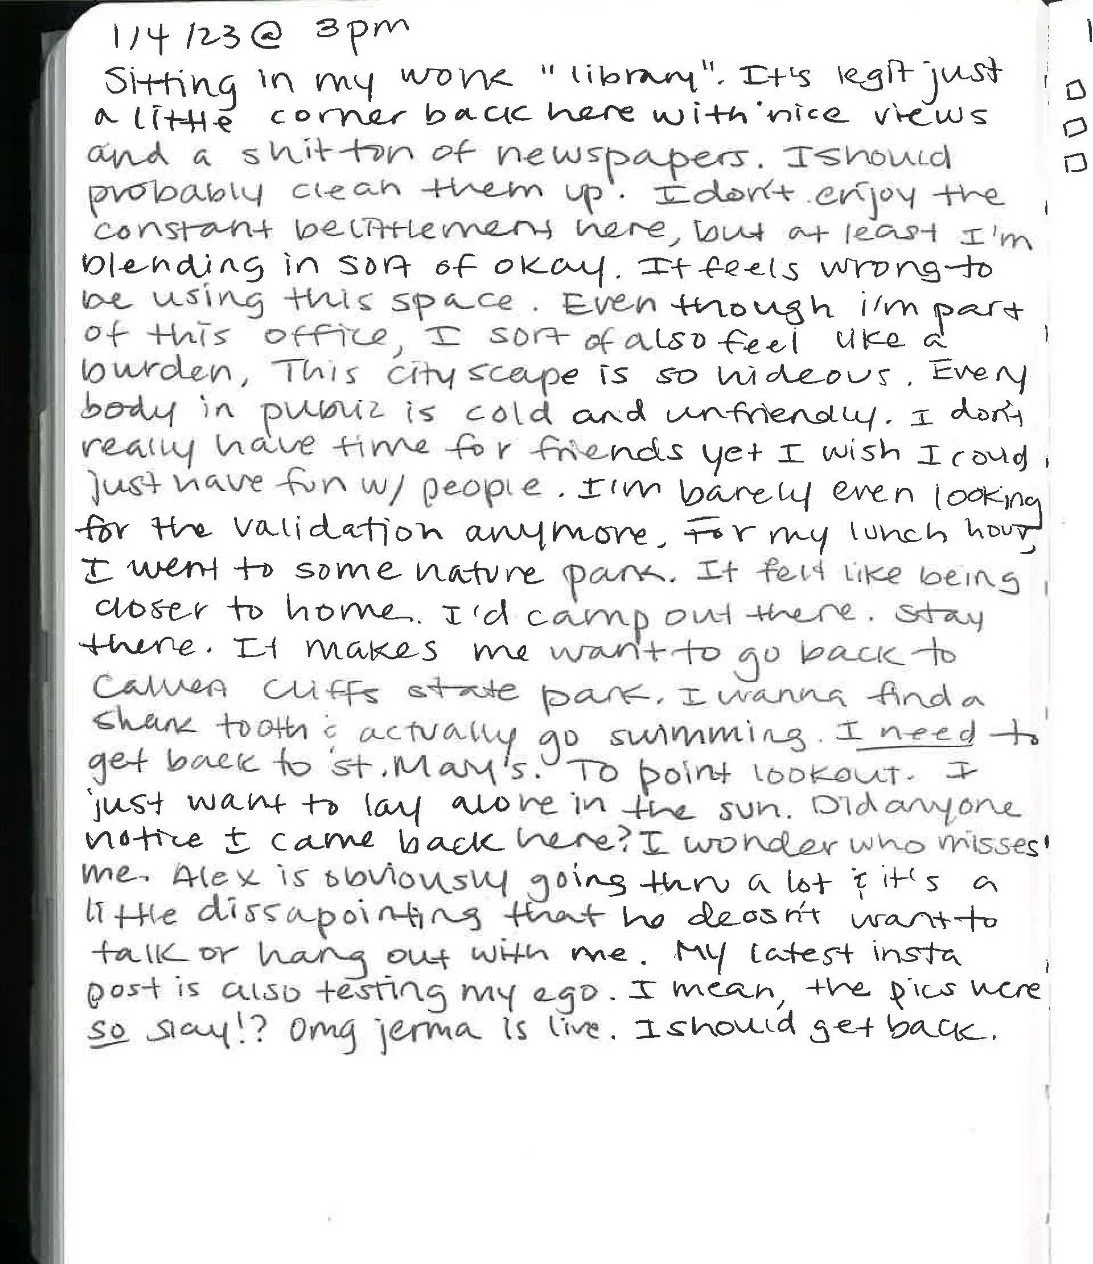 1/4/23 @ 3pm
Sitting in my work "library". It's legit just
a little corner back here with nice views
and a shit ton of newspapers. I should
probably clean them up. I don't enjoy the
constant belittlement here, but at least I'm
blending in sort of okay. It feels wrong to
be using this space. Even though i'm part
of this office, I sort of also feel like a
burden, This cityscape is so hideous. Every
body in public is cold and unfriendly. I don't
really have time for friends yet I wish I coud
just have fun w/ people. I'm barely even looking
for the validation anymore. For my lunch hour,
I went to some nature park. It felt like being
closer to home. I'd camp out there. Stay
there. It makes me want to go back to
Calvert Cliffs state park. I wanna find a
shark tooth & actually go swimming. I need to
get back to St. Mary's. To point lookout. I
just want to lay alone in the sun. Did anyone
notice I came back here? I wonder who misses
me. Alex is obviously going thru a lot & it's a
little dissapointing that he deosn't want to
talk or hang out with me. My latest insta
post is also testing my ego. I mean, the pics were
so slay!? Omg jerma is live. I should get back.